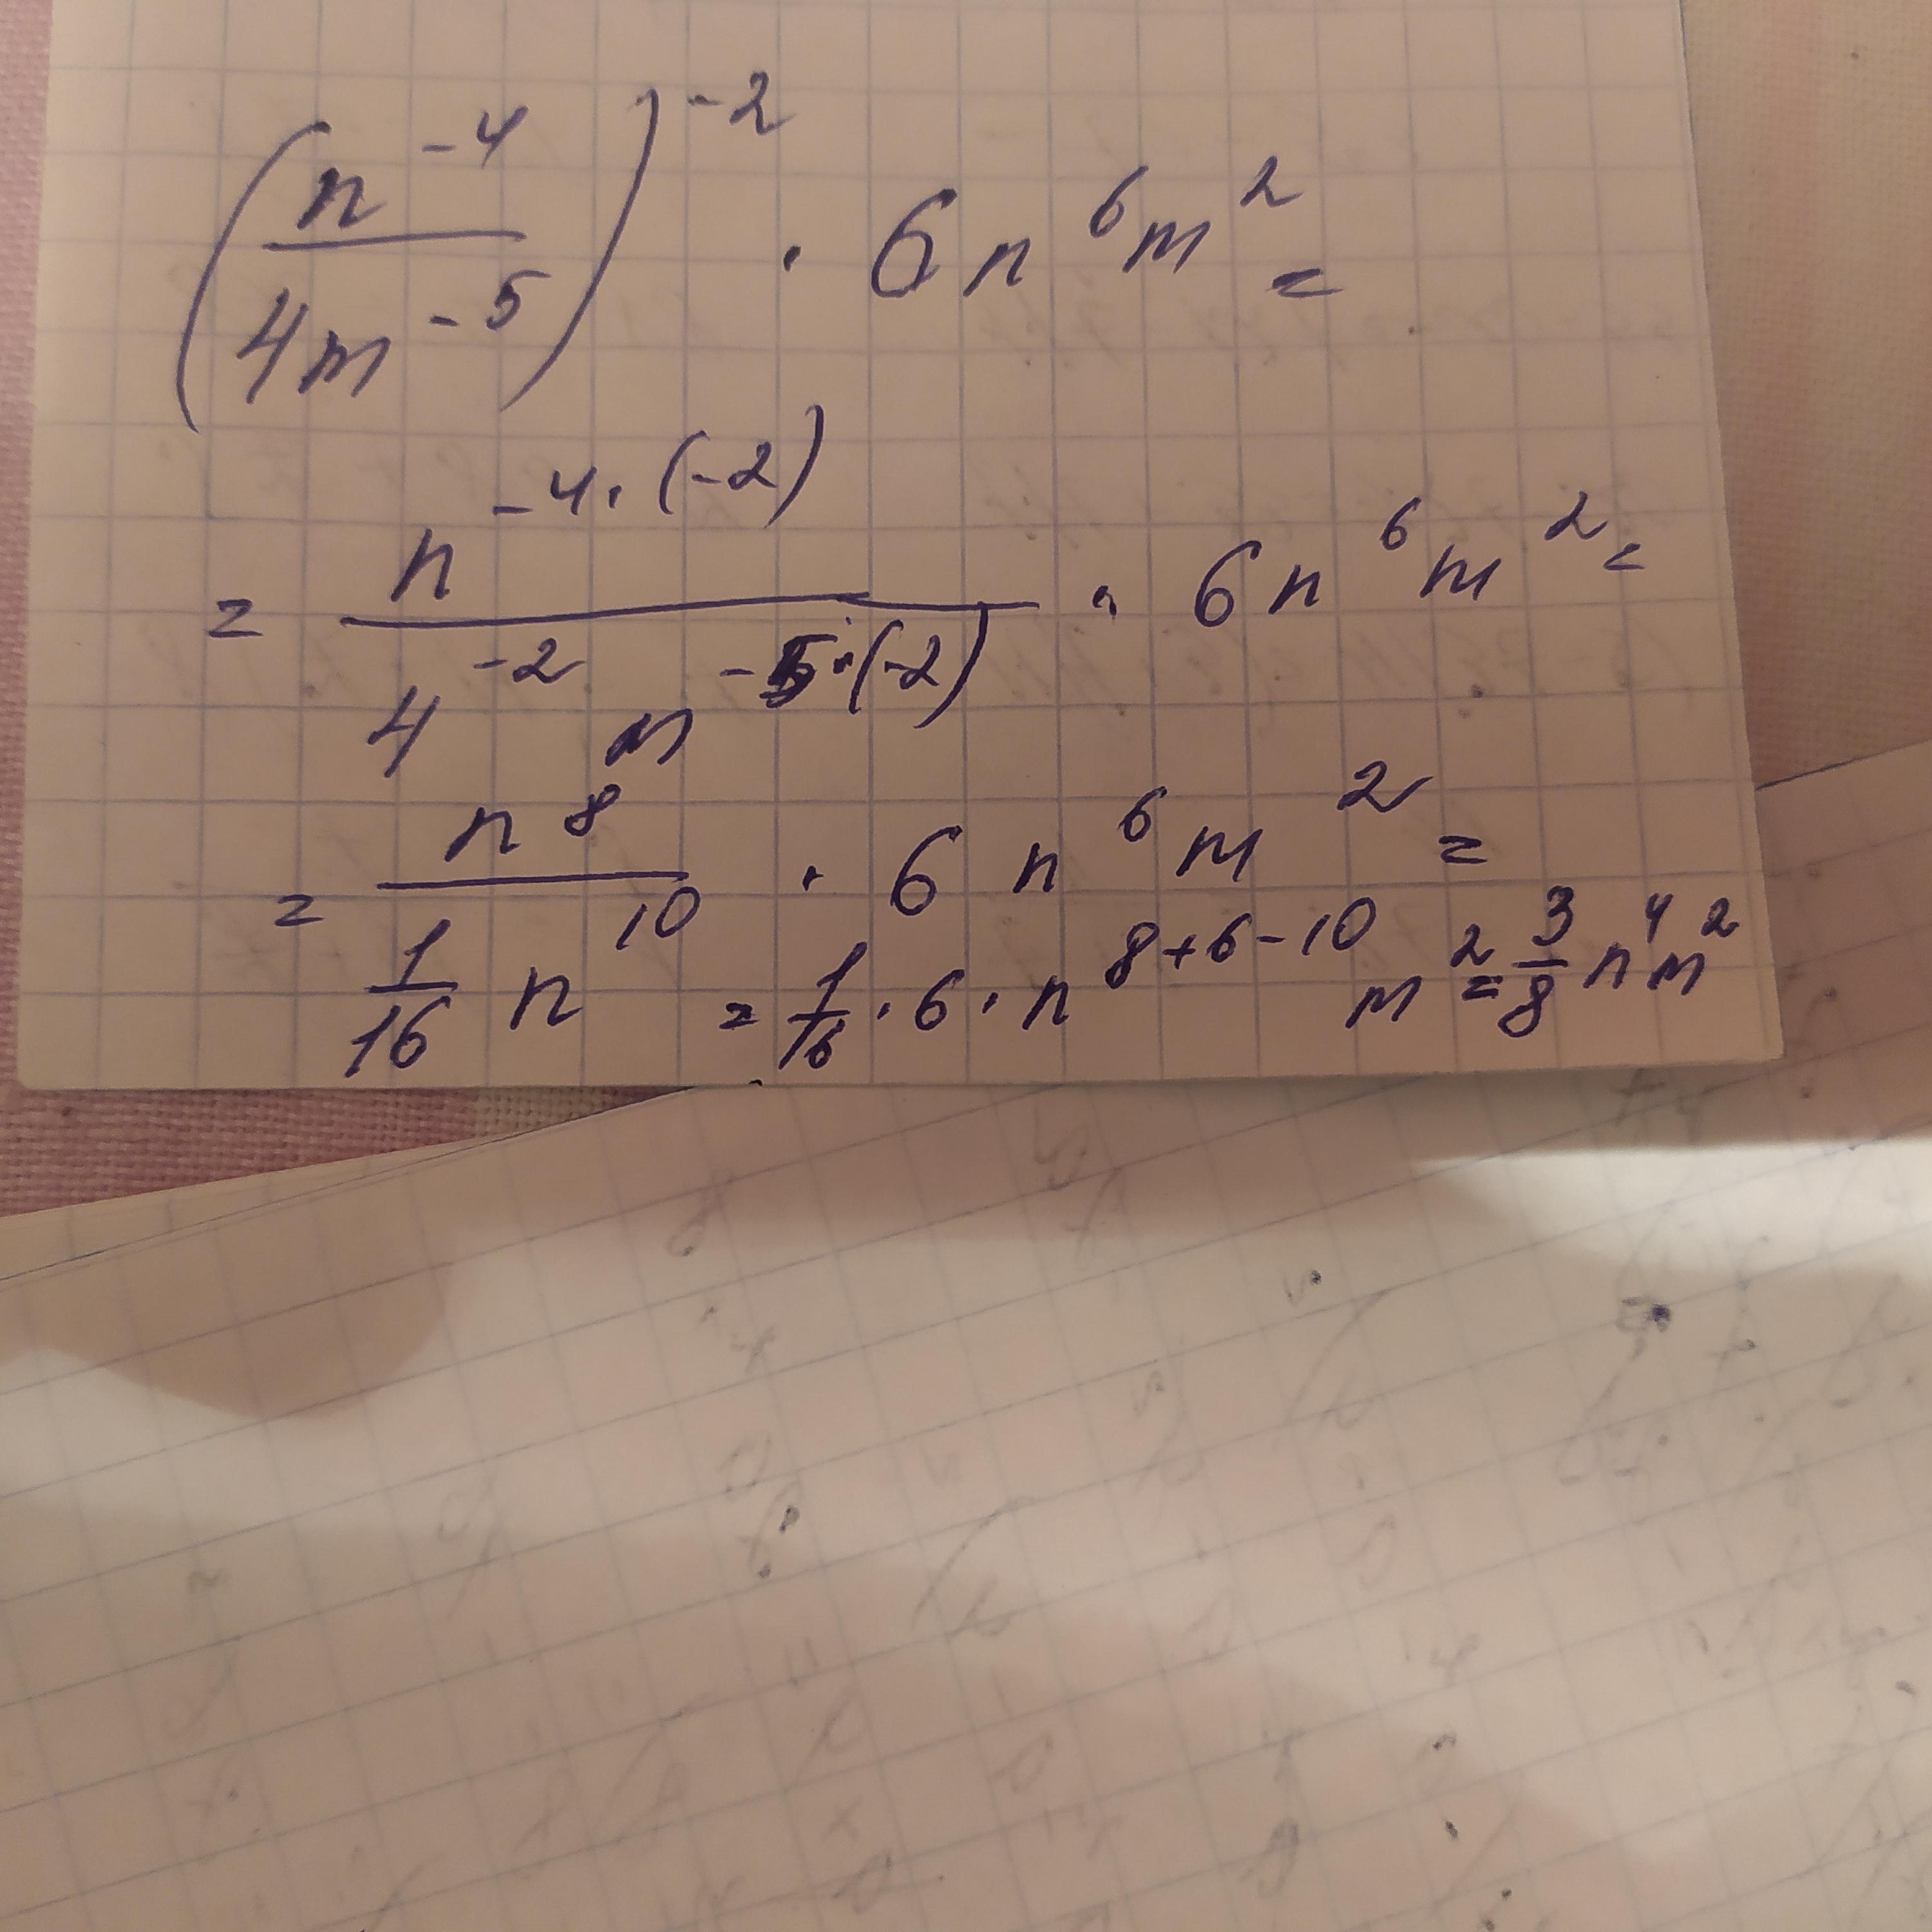 (n^-4 / 4m^-5)^-2 · 6n^6m^2 =
= n^-4·(-2) / 4^-2 m^-5·(-2) · 6n^6m^2 =
= n^8 / 1/16 n^10 · 6n^6m^2 =
= 1/16 · 6 · n^8+6-10 m^2 = 3/8 n^4m^2